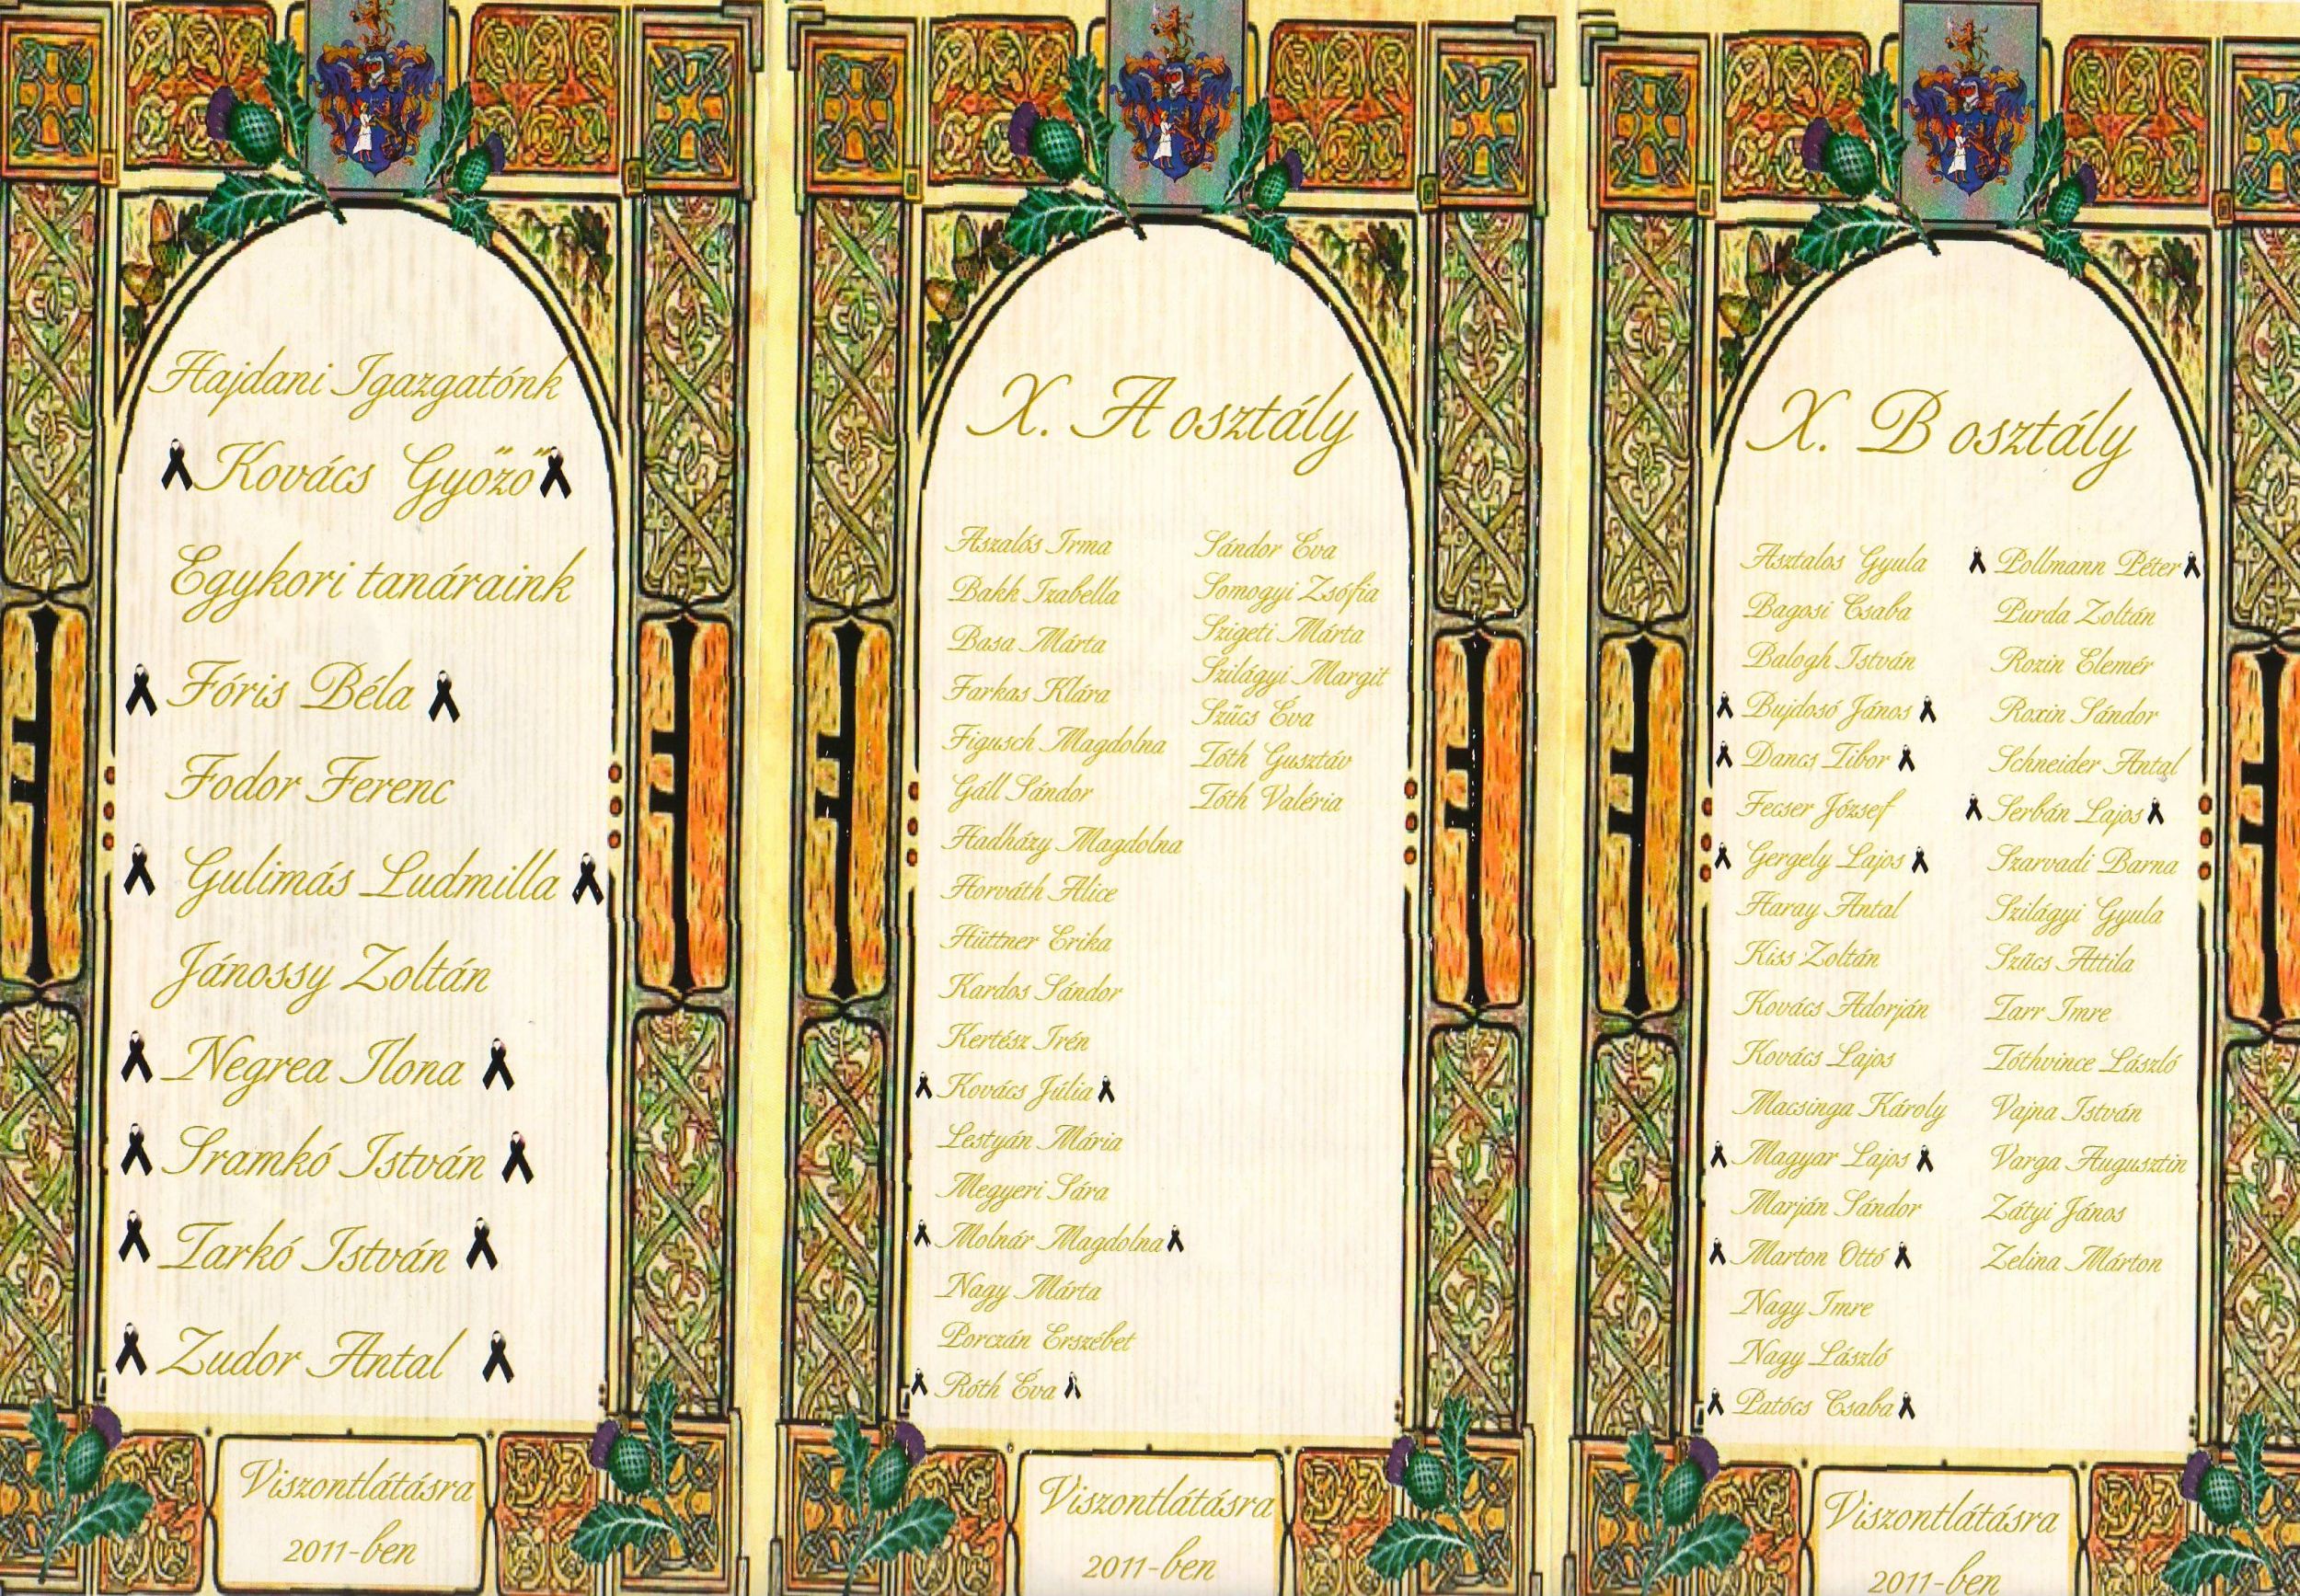 Hajdani Igazgatónk
Kovács Győző
Egykori tanáraink
Fóris Béla
Fodor Ferenc
Gulimás Ludmilla
Jánossy Zoltán
Negrea Ilona
Sramkó István
Tarkó István
Zudor Antal
Viszontlátásra
2011-ben
X. A osztály
Aszalós Irma
Bakk Izabella
Basa Márta
Farkas Klára
Figusch Magdolna
Gáll Sándor
Hadházy Magdolna
Horváth Alice
Hüttner Erika
Kardos Sándor
Kertész Irén
Kovács Júlia
Lestyán Mária
Megyeri Sára
Molnár Magdolna
Nagy Márta
Porczán Erszébet
Róth Éva
Sándor Éva
Somogyi Zsófia
Szigeti Márta
Szilágyi Margit
Szűcs Éva
Tóth Gusztáv
Tóth Valéria
Viszontlátásra
2011-ben
X. B osztály
Asztalos Gyula
Bagosi Csaba
Balogh István
Bujdosó János
Dancs Tibor
Fecser József
Gergely Lajos
Haray Antal
Kiss Zoltán
Kovács Adorján
Kovács Lajos
Macsinga Károly
Magyar Lajos
Marján Sándor
Marton Ottó
Nagy Imre
Nagy László
Patócs Csaba
Pollmann Péter
Purda Zoltán
Rozin Elemér
Roxin Sándor
Schneider Antal
Serbán Lajos
Szarvadi Barna
Szilágyi Gyula
Szűcs Attila
Tarr Imre
Tóthvince László
Vajna István
Varga Augusztin
Zátyi János
Zelina Márton
Viszontlátásra
2011-ben